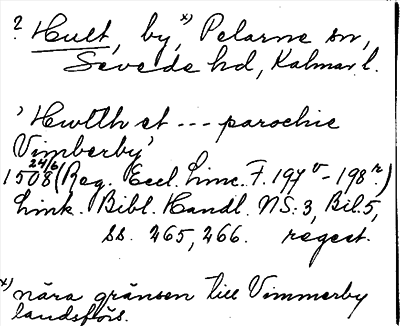 ? Hult, by,ˣ⁾ Pelarne sn,
Sevede hd, Kalmar l.
'Hwlth et --- parochie
Vimberby'
24/6
1508 (Reg. Eccl. Linc. F. 197ᵛ-198ʳ.)
Link. Bibl. Handl. NS:3, Bil.5,
ss. 265, 266. regest.
ˣ⁾ nära gränsen till Vimmerby
landsförs.